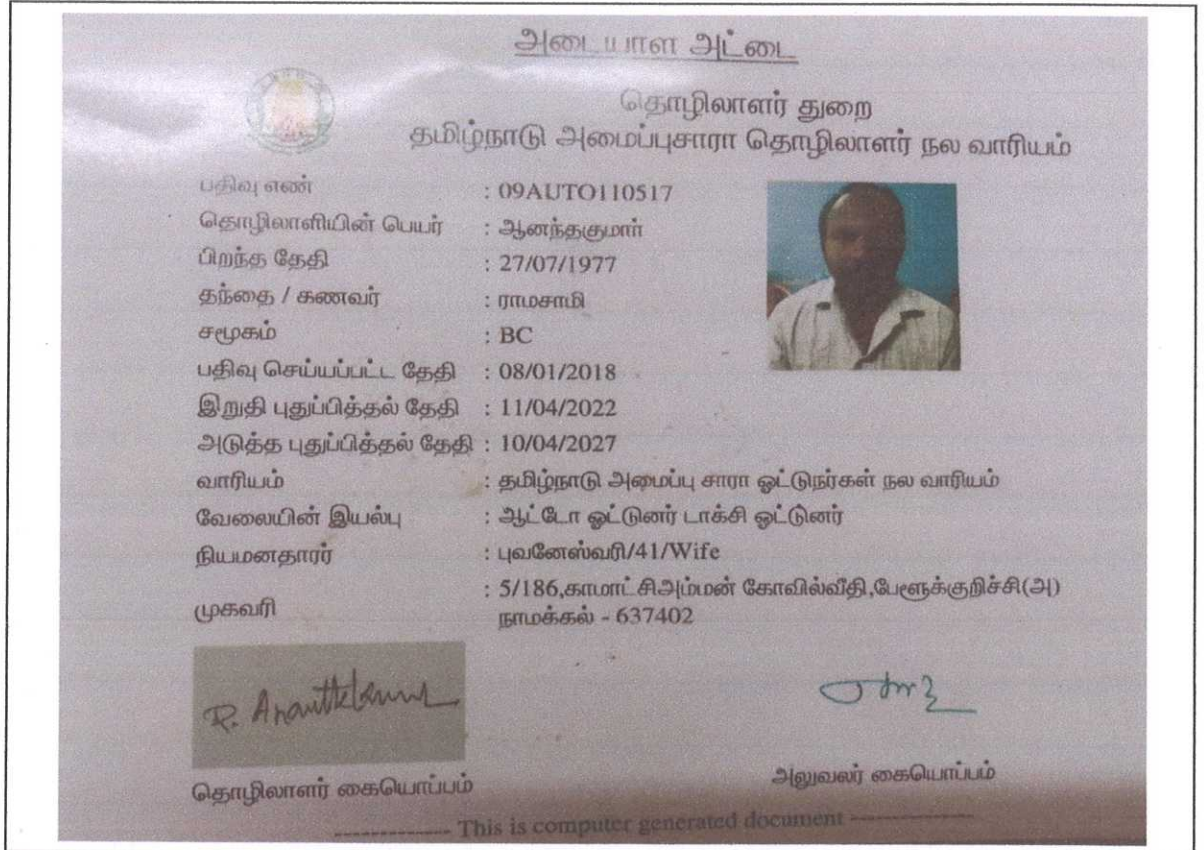 அடையாள அட்டை
தொழிலாளர் துறை
தமிழ்நாடு அமைப்புசாரா தொழிலாளர் நல வாரியம்
பதிவு எண் : 09AUTO110517
தொழிலாளியின் பெயர் : ஆனந்தகுமார்
பிறந்த தேதி : 27/07/1977
தந்தை / கணவர் : ராமசாமி
சமூகம் : BC
பதிவு செய்யப்பட்ட தேதி : 08/01/2018
இறுதி புதுப்பித்தல் தேதி : 11/04/2022
அடுத்த புதுப்பித்தல் தேதி : 10/04/2027
வாரியம் : தமிழ்நாடு அமைப்பு சாரா ஓட்டுநர்கள் நல வாரியம்
வேலையின் இயல்பு : ஆட்டோ ஓட்டுனர் டாக்சி ஓட்டுனர்
நியமனதாரர் : புவனேஸ்வரி/41/Wife
முகவரி : 5/186,காமாட்சிஅம்மன் கோவில்வீதி,பேளூக்குறிச்சி(அ)
நாமக்கல் - 637402
R. Ananthkumar
தொழிலாளர் கையொப்பம்
அலுவலர் கையொப்பம்
------------- This is computer generated document -------------